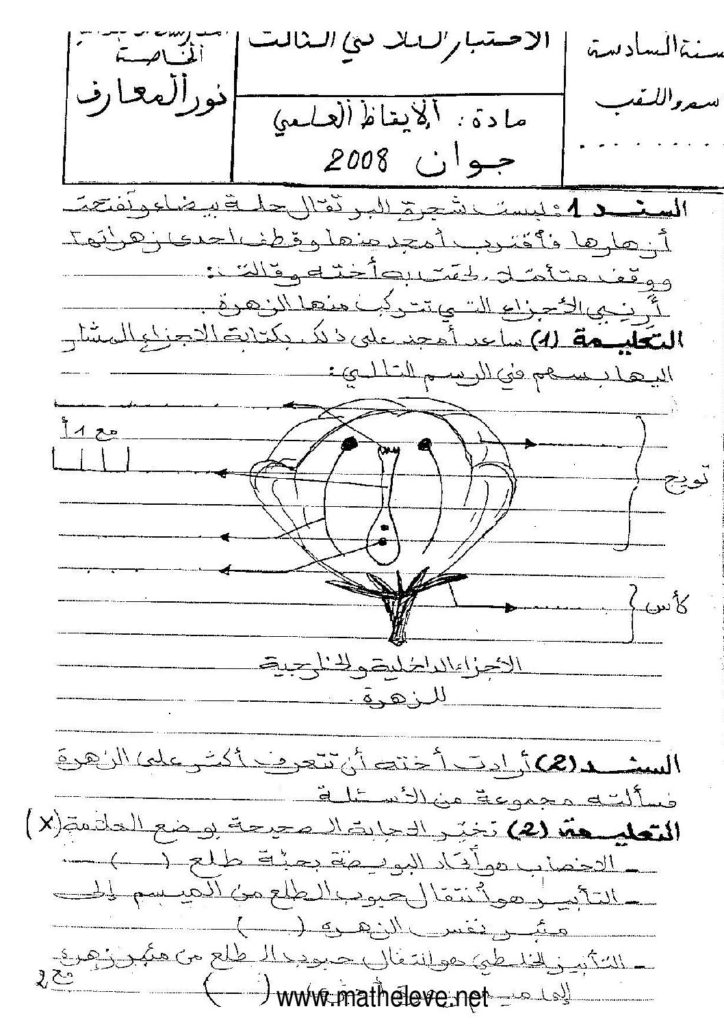 سنة السادسة
الاختبار الثلاثي الثالث
الخاصة
نور المعارف
مادة: الإيقاظ العلمي
جوان 2008
السند 1: لبست شجرة البرتقال حلة بيضاء وتفتحت
أزهارها فأقترب أمجد منها وقطف احدى زهراتها
ووقف متأملا. لحقت به أخته وقالت:
أرني الأجزاء التي تتركب منها الزهرة.
التعليمة (1) ساعد أمجد على ذلك بكتابة الاجزاء المشار
اليها بسهم في الرسم التالي:
مع 1 أ
تويج
كأس
الأجزاء الداخلية والخارجية
للزهرة.
السند (2) أرادت أخته أن تتعرف أكثر على الزهرة
فسألته مجموعة من الأسئلة
التعليمة (2) تخير الاجابة الصحيحة بوضع العلامة (x)
- الاخصاب هو أتحاد البويضة بحبة طلع ( )
- التأبير هو أنتقال حبوب الطلع من الميسم إلى
مئبر نفس الزهرة ( )
- التأبير الخلطي هو انتقال حبوب الطلع من مئبر زهرة
إلى ( )
مع 2
www.matheleve.net